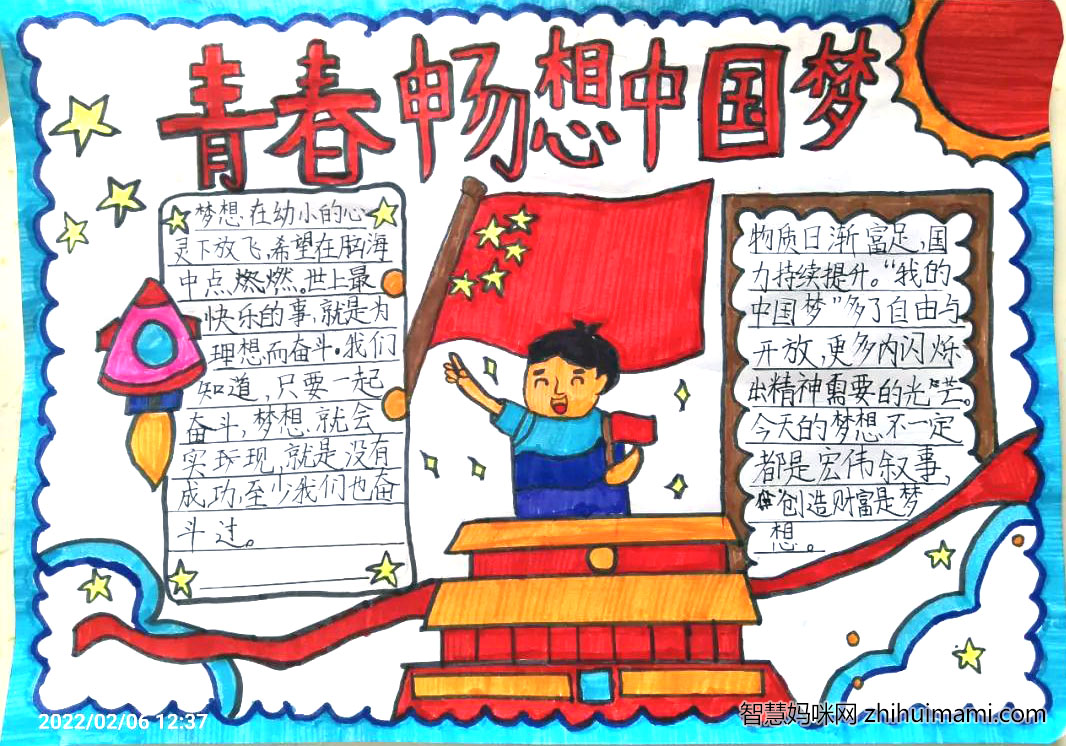 青春畅想中国梦
梦想在幼小的心
灵下放飞,希望在脑海
中点燃燃。世上最
快乐的事,就是为
理想而奋斗。我们
知道,只要一起
奋斗,梦想就会
实现,就是没有
成功,至少我们也奋
斗过。
物质日渐富足,国
力持续提升。“我的
中国梦”多了自由与
开放,更多内闪烁
出精神需要的光芒。
今天的梦想不一定
都是宏伟叙事,
创造财富是梦
想。
2022/02/06 12:37
智慧妈咪网 zhihuimami.com